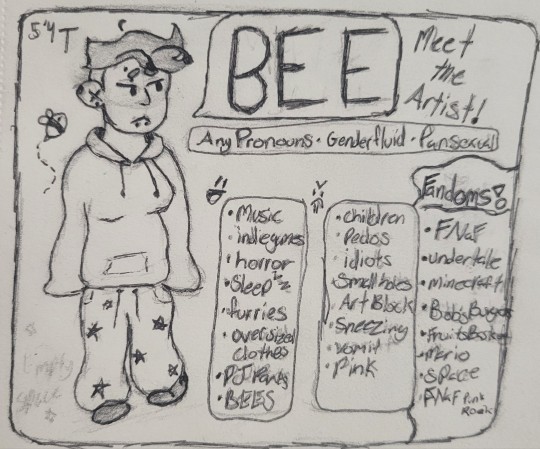 5'4 T
BEE
Meet
the
Artist!
Any Pronouns · Genderfluid · Pansexual
• Music
• indiegames
• horror
• Sleep zzz
• furries
• oversized
clothes
• PJ Pants
• BEES
• children
• Pedos
• idiots
• Small holes
• Art Block
• Sneezing
• vomit
• Pink
Fandoms!
• FNaF
• undertale
• minecraft
• Bob's Burgers
• Fruits Basket
• Mario
• SPace
• FNaF Punk
Rock
Empty
space